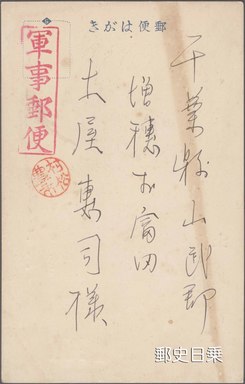 きがは便郵
軍事郵便
千葉縣山武郡
増穂村富田
土屋壽司様
郵史日乗